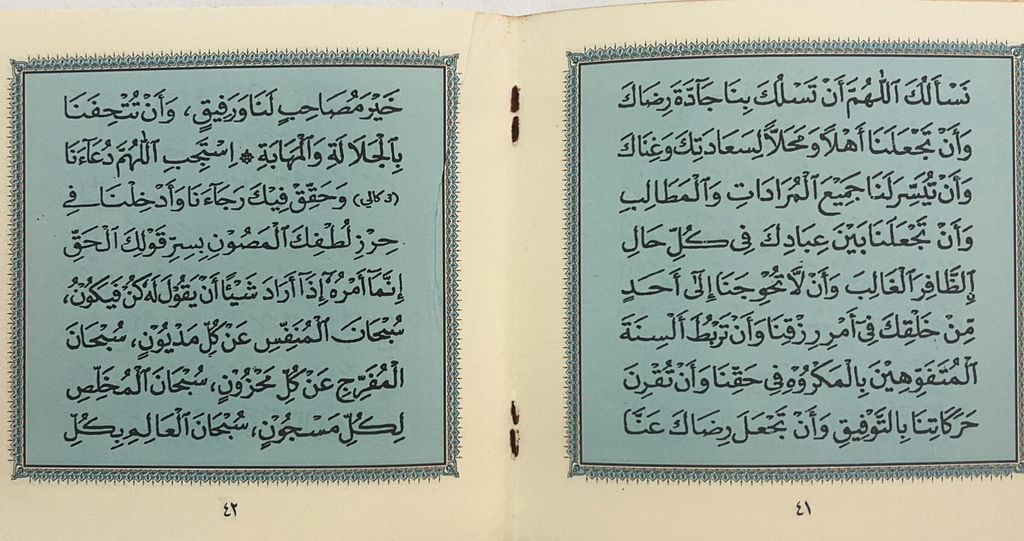 نَسْأَلُكَ ٱللّٰهُمَّ أَنْ تَسْلُكَ بِنَا جَآدَّةَ رِضَاكَ
وَأَنْ تَجْعَلَنَا أَهْلاً وَمَحَلاًّ لِسَعَادَتِكَ وَغِنَاكَ
وَأَنْ تُيَسِّرَ لَنَا جَمِيْعَ الْمُرَادَاتِ وَالْمَطَالِبِ
وَأَنْ تَجْعَلَنَا بَيْنَ عِبَادِكَ فِي كُلِّ حَالٍ
اِلظَّافِرِ الْغَالِبَ وَأَنْ لَّا تُحْوِجَنَا إِلَى أَحَدٍ
مِّنْ خَلْقِكَ فِيْ أَمْرِ رِزْقِنَا وَأَنْ تَرْبُطَ أَلْسِنَةَ
الْمُتَفَوِّهِيْنَ بِالْمَكْرُوْهِ فِي حَقِّنَا وَأَنْ تُقْرِنَ
حَرَكَاتِنَا بِالتَّوْفِيْقِ وَأَنْ تَجْعَلَ رِضَاكَ عَنَّا
٤١
خَيْرَ مُصَاحِبٍ لَنَا وَرَفِيْقٍ، وَأَنْ تُتْحِفَنَا
بِالْجَلَالَةِ وَالْمَهَابَةِ * اِسْتَجِبِ اللّٰهُمَّ دُعَآءَنَا
(3 كالي) وَحَقِّقْ فِيْكَ رَجَآءَنَا وَأَدْخِلْنَا فِي
حِرْزِ لُطْفِكَ الْمَصُوْنِ بِسِرِّ قَوْلِكَ الْحَقِّ
إِنَّمَآ أَمْرُهُٓ إِذَآ أَرَادَ شَيْئًا أَنْ يَقُوْلَ لَهُ كُنْ فَيَكُوْنُ،
سُبْحَانَ الْمُنَفِّسِ عَنْ كُلِّ مَدْيُوْنٍ، سُبْحَانَ
الْمُفَرِّجِ عَنْ كُلِّ مَحْزُوْنٍ، سُبْحَانَ الْمُخَلِّصِ
لِكُلِّ مَسْجُوْنٍ، سُبْحَانَ الْعَالِمِ بِكُلِّ
٤٢